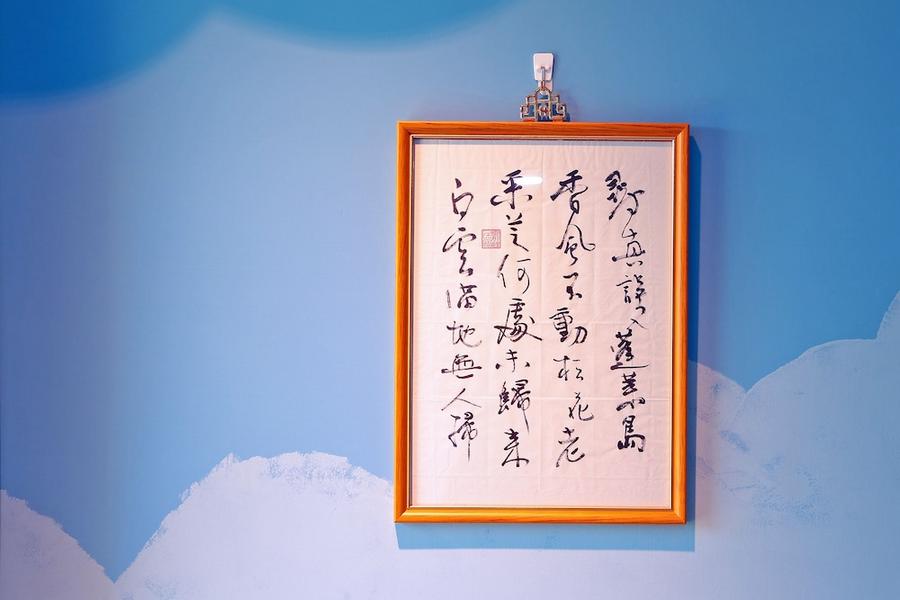 尋真誤入蓬萊島
香風不動松花老
采芝何處未歸来
白雲滿地無人掃